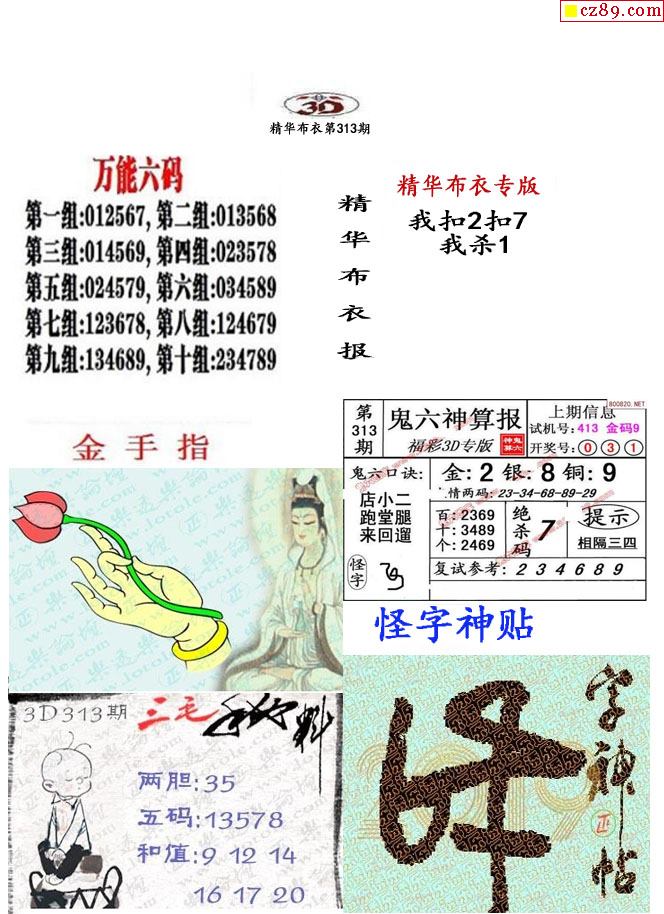 cz89.com
3D
精华布衣第313期
万能六码
第一组:012567, 第二组:013568
第三组:014569, 第四组:023578
第五组:024579, 第六组:034589
第七组:123678, 第八组:124679
第九组:134689, 第十组:234789
精华布衣报
精华布衣专版
我扣2扣7
我杀1
金手指
第313期
鬼六神算报
福彩3D专版
神鬼算六
800820.NET
上期信息
试机号:413 金码9
开奖号:0 3 1
鬼六口诀:
店小二
跑堂腿
来回遛
怪字
金:2 银:8 铜:9
情两码:23-34-68-89-29
百:2369
十:3489
个:2469
绝杀码 7
提示
相隔三四
复试参考: 2 3 4 6 8 9
怪字神贴
3D313期
三毛
料
两胆:35
五码:13578
和值:9 12 14
16 17 20
字神帖